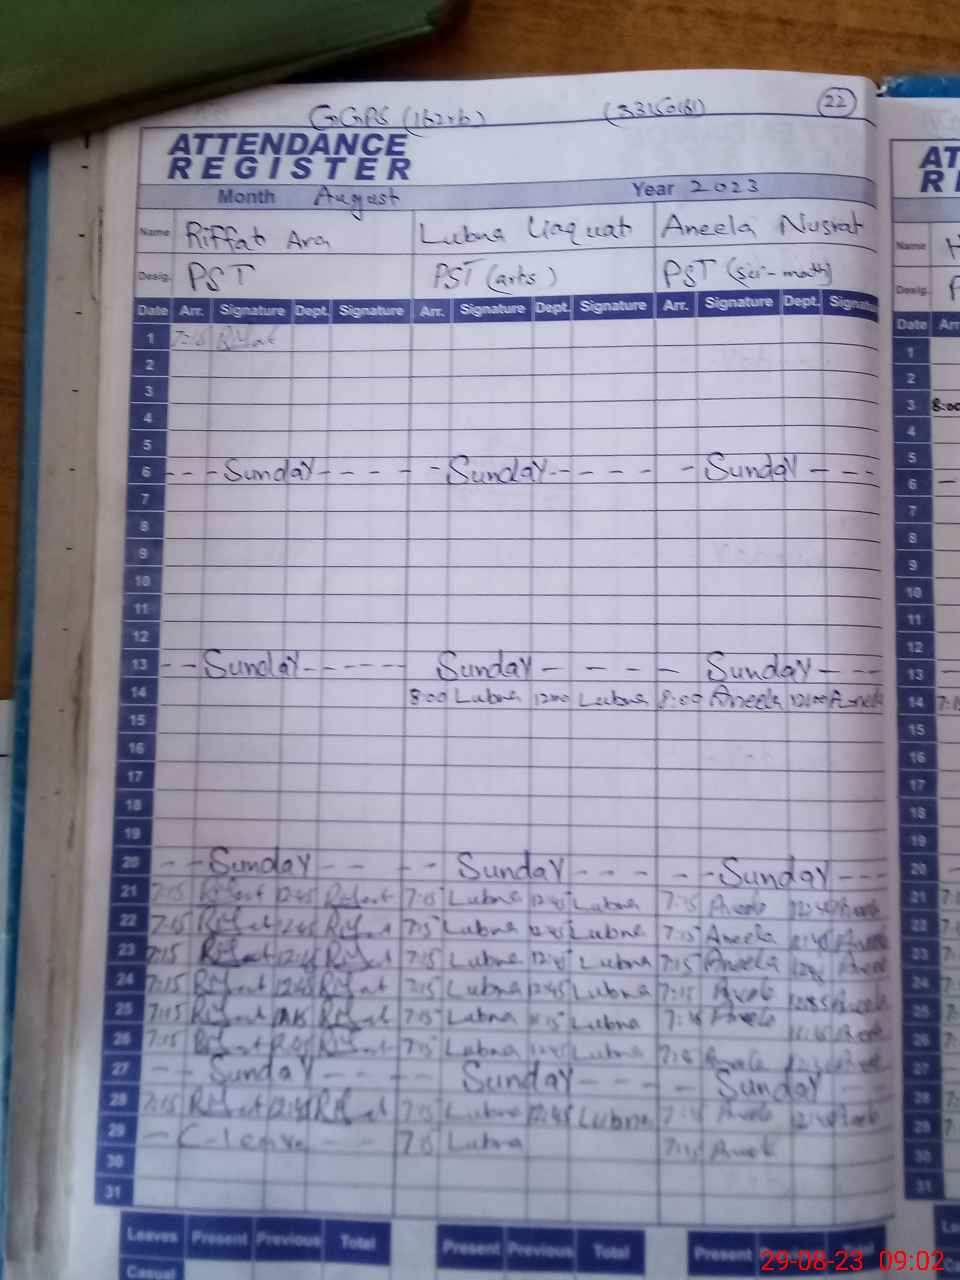 (22)
ATTENDANCE
REGISTER
Month August Year 2023
Name Riffat Ara Lubna Liaquat Aneela Nusrat
Desig. PST PST (arts) PST (sci-math)
Date Arr. Signature Dept. Signature Arr. Signature Dept. Signature Arr. Signature Dept. Signature
1 7:15 Riffat
2
3
4
5
6 - - - Sunday - - - - - Sunday - - - - - - Sunday - - -
7
8
9
10
11
12
13 - - Sunday - - - - - - Sunday - - - - - Sunday - - -
14 8:00 Lubna 1200 Lubna 8:00 Aneela 12:00 Aneela
15
16
17
18
19
20 - - Sunday - - - - Sunday - - - - - Sunday - - -
21 7:15 Riffat 12:45 Riffat 7:15 Lubna 12:45 Lubna 7:15 Aneela
22 7:15 Riffat 12:45 Riffat 7:15 Lubna 12:45 Lubna 7:15 Aneela
23 7:15 Riffat 12:45 Riffat 7:15 Lubna 12:45 Lubna 7:15 Aneela
24 7:15 Riffat 12:45 Riffat 7:15 Lubna 12:45 Lubna 7:15 Aneela
25 7:15 Riffat Riffat 7:15 Lubna Lubna Aneela
26 7:15 Riffat Riffat 7:15 Lubna 12:45 Lubna
27 - - Sunday - - - - - Sunday - - - - Sunday
28 7:15 Riffat 12:45 Riffat 7:15 Lubna 12:45 Lubna
29 - C-leave - - 7:15 Lubna 7:15
30
31
Leaves Present Previous Total Present Previous Total Present Total
Casual
AT
RE
Name
Desig.
Date Arr
1
2
3 8:00
4
5
6
7
8
9
10
11
12
13
14
15
16
17
18
19
20
21
22
23
24
25
26
27
28
29
30
31
29-08-23 09:02